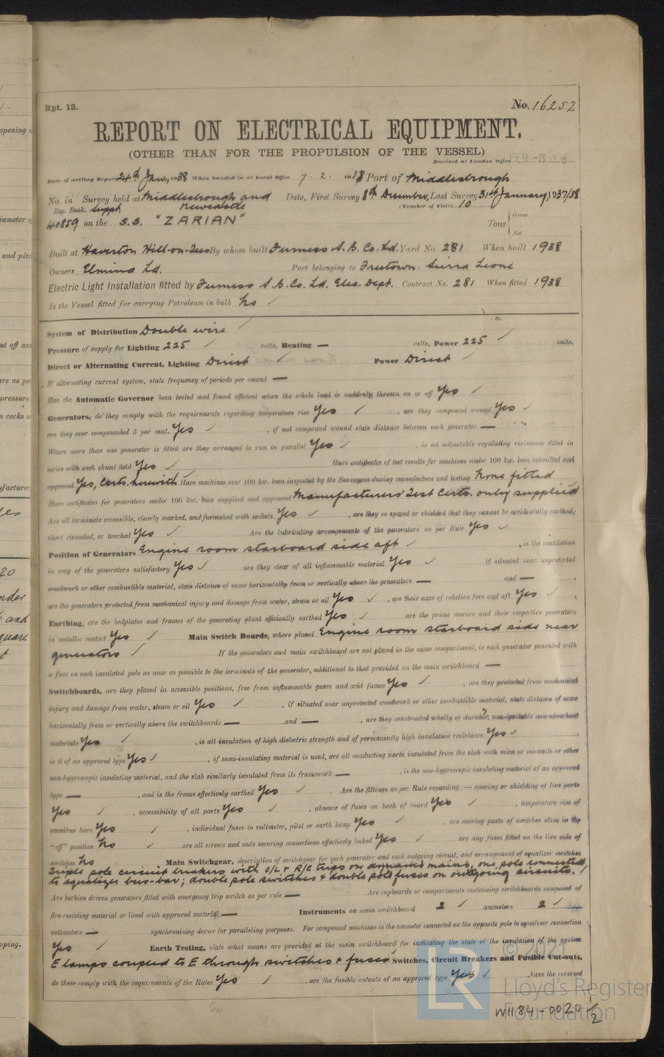 Rpt. 13.
No. 16252
REPORT ON ELECTRICAL EQUIPMENT.
(OTHER THAN FOR THE PROPULSION OF THE VESSEL)
Received at London Office FEB -8 1938
Date of writing Report 24th Jany, 1938 When handed in at Local Office 7. 2. 1938 Port of Middlesbrough
No. in Survey held at Middlesbrough and Newcastle Date, First Survey 8th December, Last Survey 31st January, 1937/38
Reg. Book. Suppt. (Number of Visits 10
40889 on the S.S. "ZARIAN" Tons { Gross Net
Built at Haverton Hill-on-Tees By whom built Furness S.B. Co. Ld. Yard No. 281 When built 1938
Owners Elmina Ld. Port belonging to Freetown. Sierra Leone
Electric Light Installation fitted by Furness S.B. Co. Ld. Elec. Dept. Contract No. 281 When fitted 1938
Is the Vessel fitted for carrying Petroleum in bulk No
System of Distribution Double wire
Pressure of supply for Lighting 225 volts, Heating — volts, Power 225 volts.
Direct or Alternating Current, Lighting Direct Power Direct
If alternating current system, state frequency of periods per second —
Has the Automatic Governor been tested and found efficient when the whole load is suddenly thrown on or off Yes
Generators, do they comply with the requirements regarding temperature rise Yes, are they compound wound Yes
are they over compounded 5 per cent. Yes, if not compound wound state distance between each generator —
Where more than one generator is fitted are they arranged to run in parallel Yes, is an adjustable regulating resistance fitted in
series with each shunt field Yes Have certificates of test results for machines under 100 kw. been submitted and
approved Yes, Certs. herewith Have machines over 100 kw. been inspected by the Surveyors during manufacture and testing None fitted
Have certificates for generators under 100 kw. been supplied and approved Manufacturers Test Certs. only supplied
Are all terminals accessible, clearly marked, and furnished with sockets Yes, are they so spaced or shielded that they cannot be accidentally earthed,
short circuited, or touched Yes Are the lubricating arrangements of the generators as per Rule Yes
Position of Generators Engine room starboard side aft, is the ventilation
in way of the generators satisfactory Yes are they clear of all inflammable material Yes if situated near unprotected
woodwork or other combustible material, state distance of same horizontally from or vertically above the generators — and —
are the generators protected from mechanical injury and damage from water, steam or oil Yes, are their axes of rotation fore and aft Yes
Earthing, are the bedplates and frames of the generating plant efficiently earthed Yes are the prime movers and their respective generators
in metallic contact Yes Main Switch Boards, where placed Engine room starboard side near
generators If the generators and main switchboard are not placed in the same compartment, is each generator provided with
a fuse on each insulated pole as near as possible to the terminals of the generator, additional to that provided on the main switchboard —
Switchboards, are they placed in accessible positions, free from inflammable gases and acid fumes Yes, are they protected from mechanical
injury and damage from water, steam or oil Yes, if situated near unprotected woodwork or other combustible material, state distance of same
horizontally from or vertically above the switchboards — and —, are they constructed wholly of durable, non-ignitable non-absorbent
materials Yes, is all insulation of high dielectric strength and of permanently high insulation resistance Yes
is it of an approved type Yes, if semi-insulating material is used, are all conducting parts insulated from the slab with mica or micanite or other
non-hygroscopic insulating material, and the slab similarly insulated from its framework —, is the non-hygroscopic insulating material of an approved
type —, and is the frame effectively earthed Yes Are the fittings as per Rule regarding:— spacing or shielding of live parts
Yes, accessibility of all parts Yes, absence of fuses on back of board Yes, temperature rise of
omnibus bars Yes, individual fuses to voltmeter, pilot or earth lamp Yes, are moving parts of switches alive in the
"off" position No are all screws and nuts securing connections effectively locked Yes are any fuses fitted on the live side of
switches No Main Switchgear, description of switchgear for each generator and each outgoing circuit, and arrangement of equaliser switches
Triple pole circuit breakers with O/L & R/C trips on dynamo mains, one pole connected
to equalizer bus-bar; double pole switches & double pole fuses on outgoing circuits.
Are turbine driven generators fitted with emergency trip switch as per rule — Are cupboards or compartments containing switchboards composed of
fire-resisting material or lined with approved material — Instruments on main switchboard 2 ammeters 2
voltmeters — synchronising device for paralleling purposes. For compound machines is the ammeter connected on the opposite pole to equaliser connection
Yes Earth Testing, state what means are provided at the main switchboard for indicating the state of the insulation of the system
E lamps coupled to E through switches & fuses Switches, Circuit Breakers and Fusible Cutouts,
do these comply with the requirements of the Rules Yes are the fusible cutouts of an approved type Yes, have the reversed
© 2021
LR
Lloyd's Register
Foundation
W1184-0020 1/2